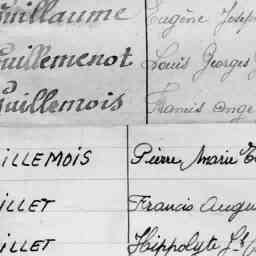 Guillaume Eugène Joseph
Guillemenot Louis Georges
Guillemois Francis Ange
ILLEMOIS Pierre Marie
ILLET Francis Augu
ILLET Hippolyte